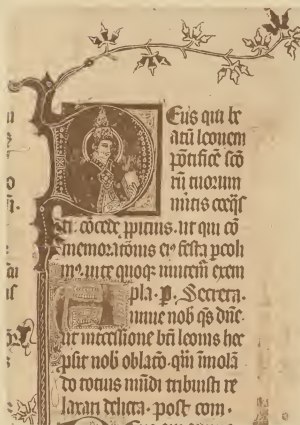 Deus qui be
atū leonem
pōtificē scō
rū tuorum
mitis coeqs
ti. cōcede ppitius. ut qui cō
memoratōnis eiꝰ festa pcoli
mꝰ. uite quoqꝫ imitem exem
pla. p. Secreta.
nnue nob qs dūe.
ut intcessione bti leonis hec
psit nob oblatō. quā imolā
do totius mūdi tribuisti re
laxari delicta. post com.